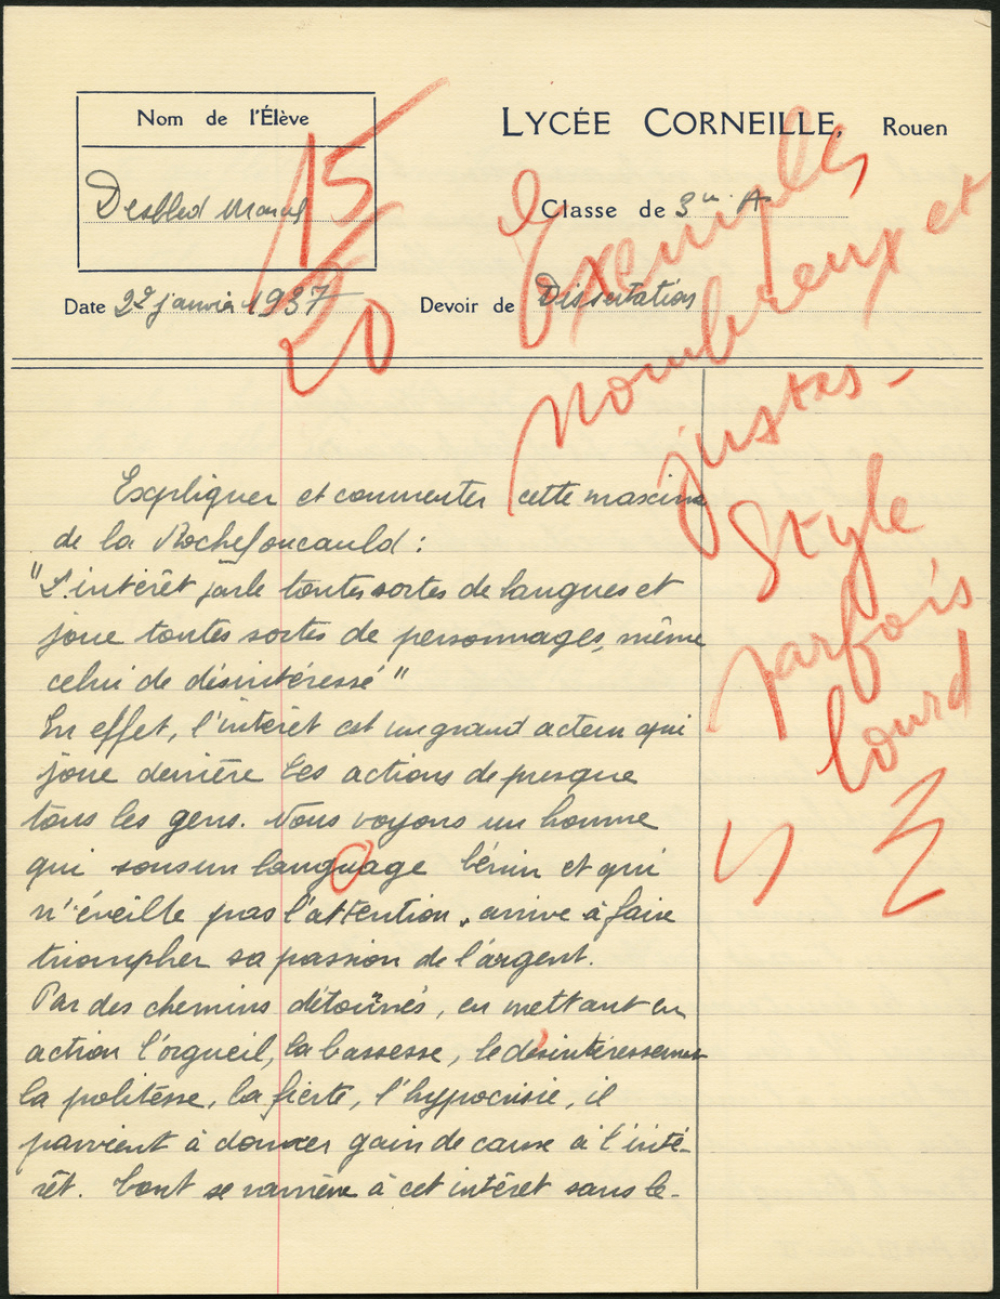 Nom de l'Élève
LYCÉE CORNEILLE, Rouen
Classe de 3e A
Date 22 janvier 1937
Devoir de Dissertation
15
20
Exemples
nombreux et
justes -
Style
parfois
lourd
Expliquer et commenter cette maxime
de la Rochefoucauld :
"L'intérêt parle toutes sortes de langues et
joue toutes sortes de personnages, même
celui de désintéressé"
En effet, l'intérêt est un grand acteur qui
joue derrière les actions de presque
tous les gens. Nous voyons un homme
qui sous un language bénin et qui
n'éveille pas l'attention, arrive à faire
triompher sa passion de l'argent.
Par des chemins détournés, en mettant en
action l'orgueil, la bassesse, le désintéressement
la politesse, la fierté, l'hypocrisie, il
parvient à donner gain de cause à l'inté-
rêt. Tout se ramène à cet intérêt sans le-